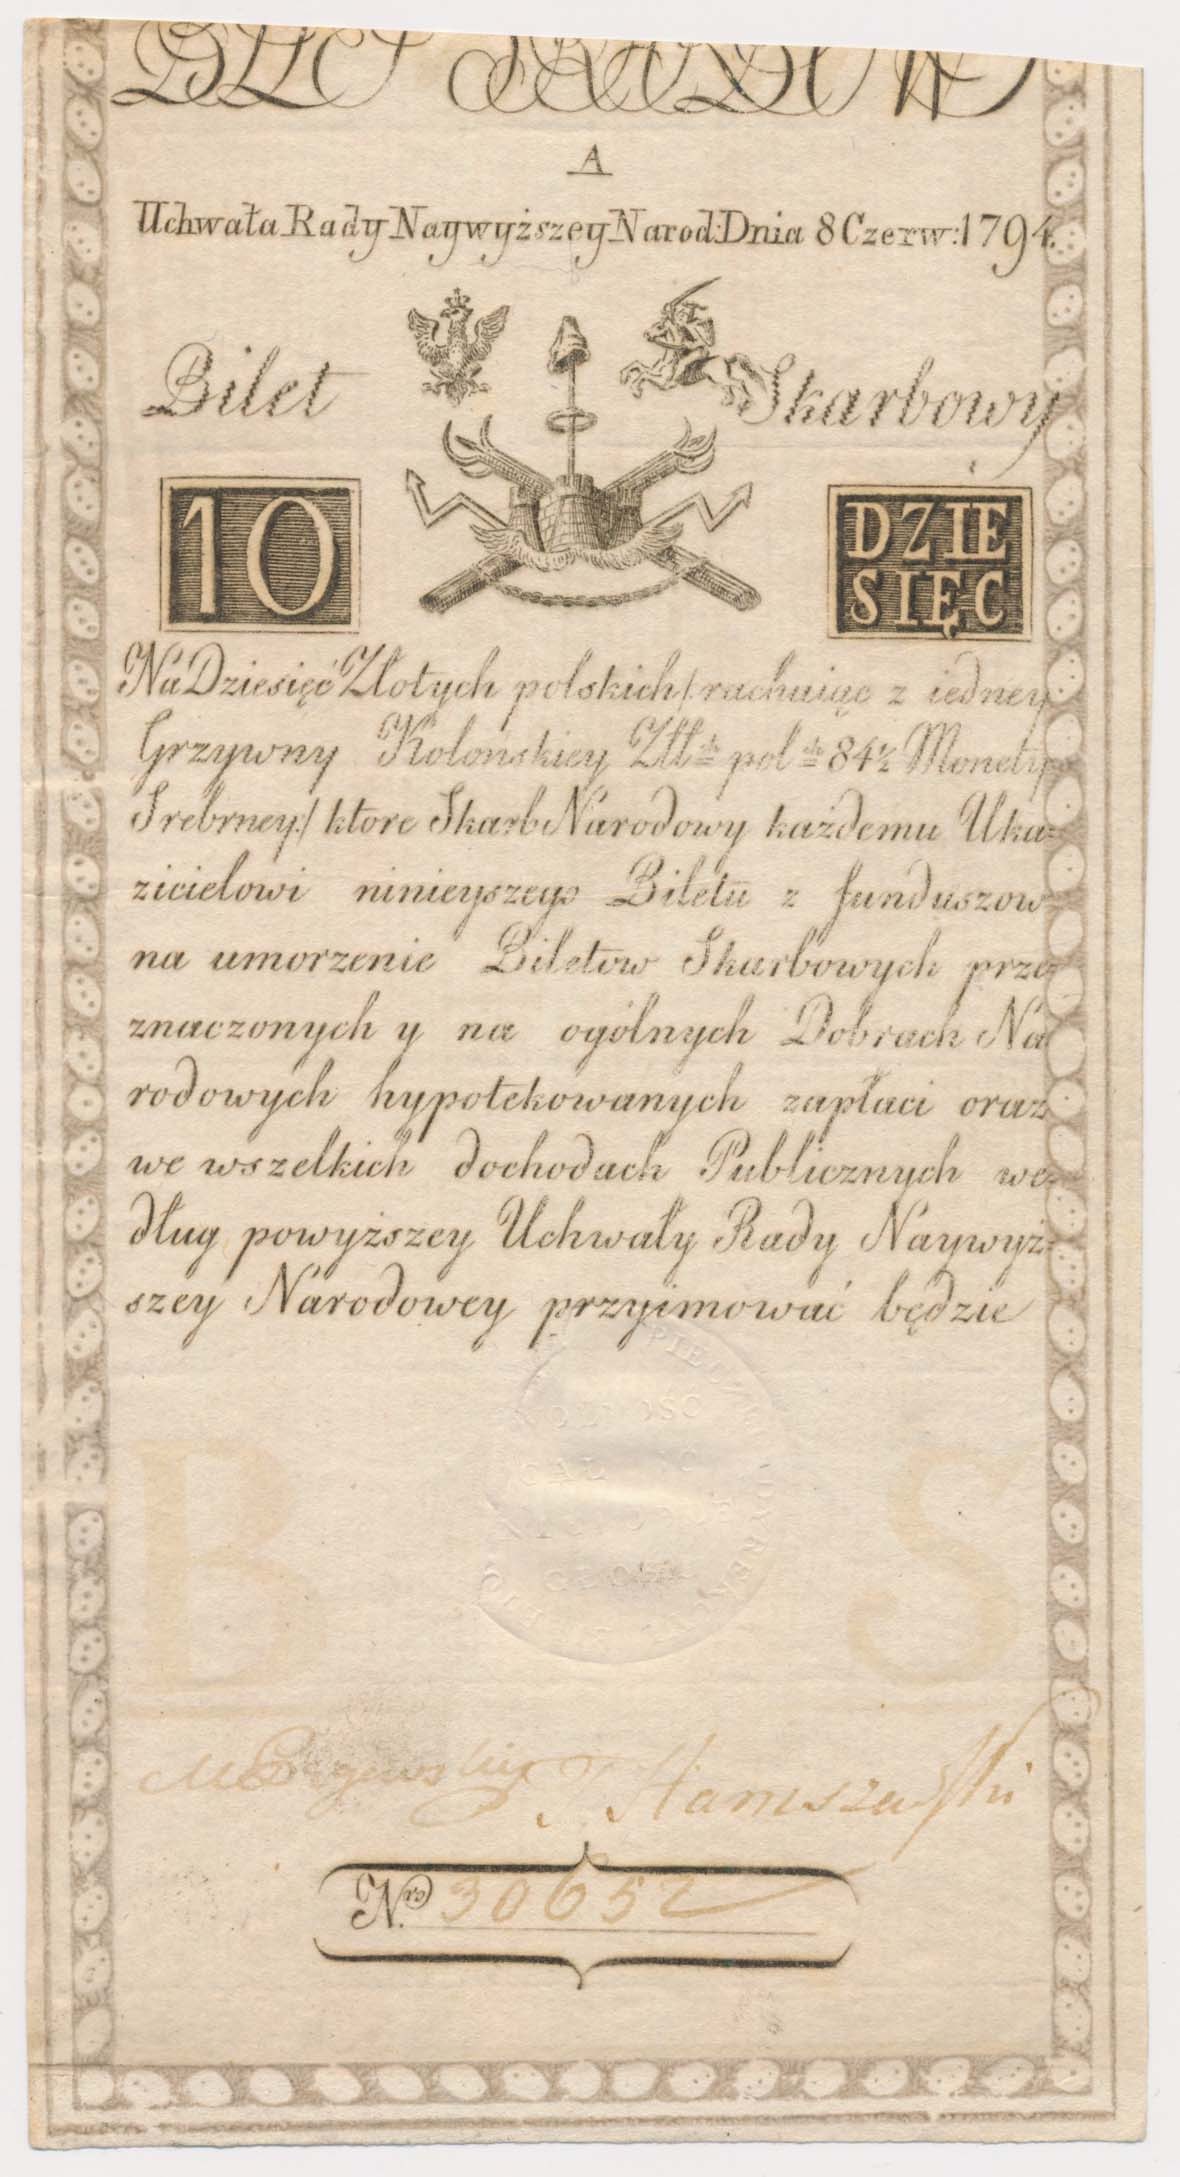 BILET SKARBOWY
A
Uchwała Rady Naywyższey Narod: Dnia 8 Czerw: 1794.
Bilet Skarbowy
10
DZIE
SIĘĆ
Na Dziesięć Złotych polskich /: rachuiąc z iedney
Grzywny Kolońskiey Złł:ch pol:ch 84½ Monety
Srebrney :/ ktore Skarb Narodowy każdemu Uka=
zicielowi ninieyszego Biletu z funduszow
na umorzenie Biletow Skarbowych prze=
znaczonych y na ogólnych Dobrach Na
rodowych hypotekowanych zapłaci oraz
we wszelkich dochodach Publicznych we=
dług powyższey Uchwały Rady Naywyż=
szey Narodowey przyimować będzie
WOLNOSC
CAŁOSC
B S
Nro 30652